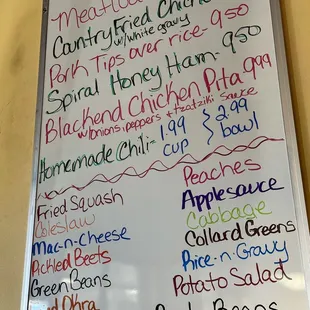 Meatloa
Country Fried Chicke
w/white gravy
Pork Tips over rice-9.50
Spiral Honey Ham-9.50
Blackend Chicken Pita 9.99
w/onions, peppers + tzatziki sauce
Homemade Chili- 1.99 cup } 2.99 bowl
Peaches
Fried Squash
Applesauce
Coleslaw
Cabbage
Mac-n-Cheese
Collard Greens
Pickled Beets
Rice-n-Gravy
Green Beans
Potato Salad
Okra
Beans